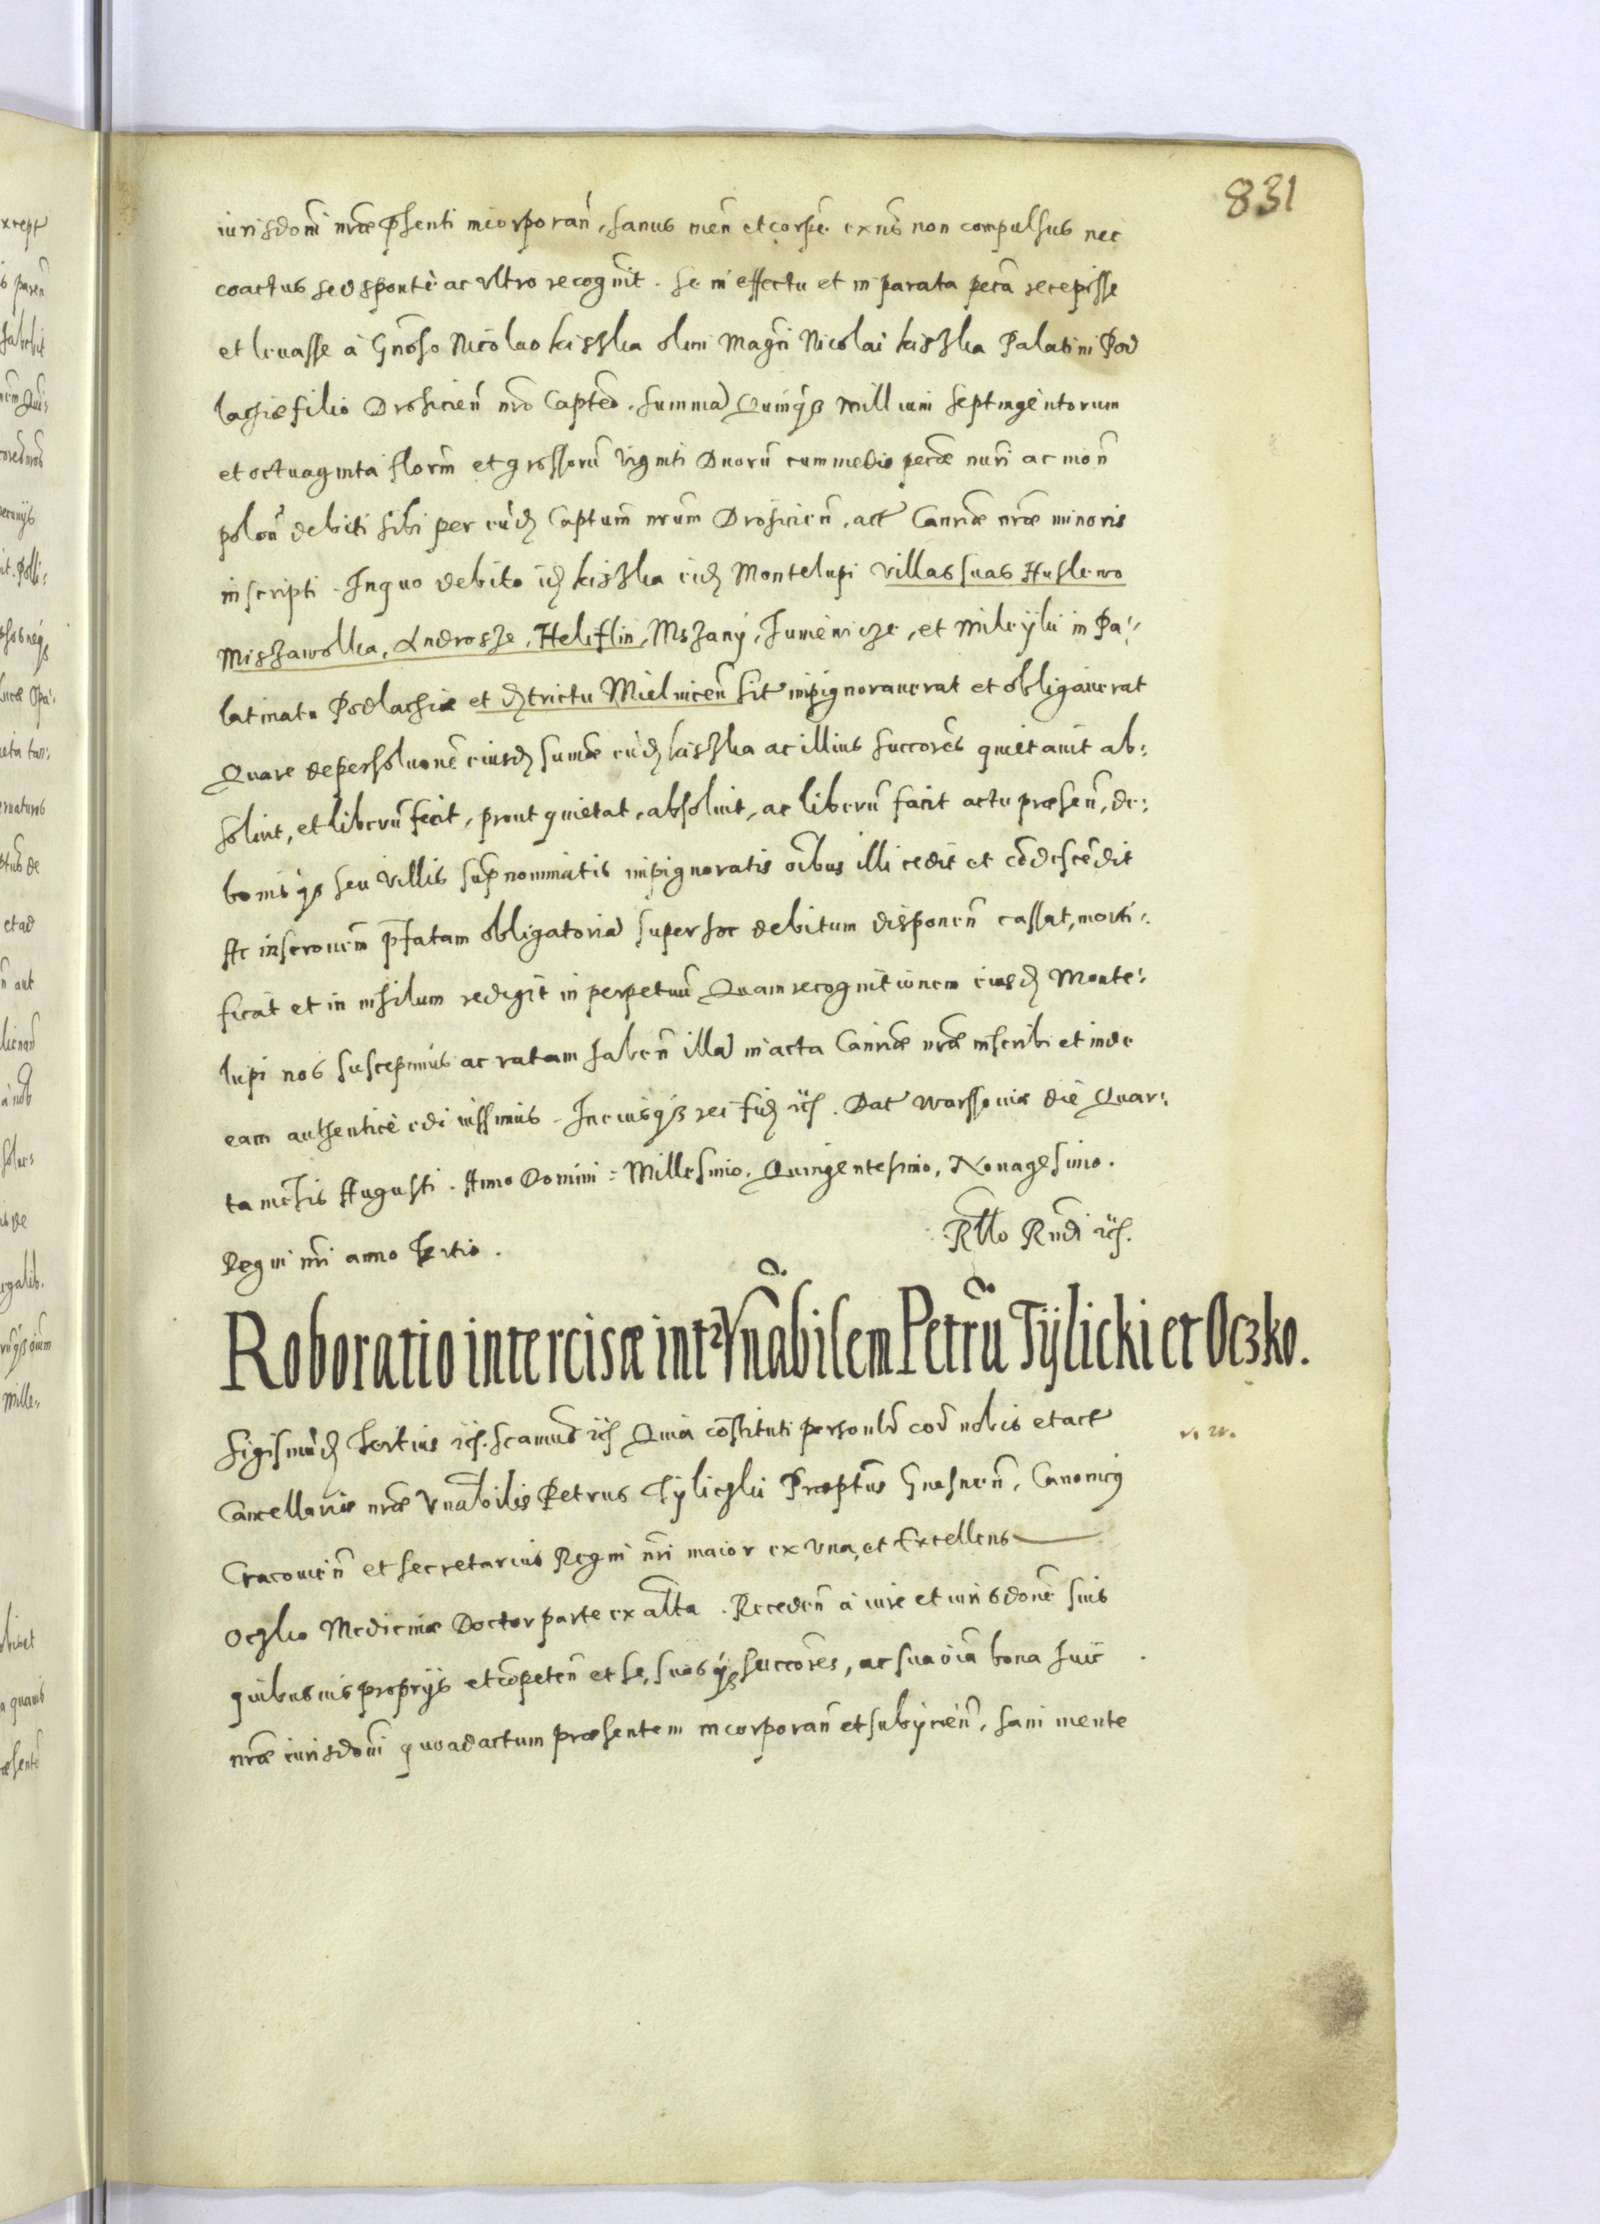 831
iurisdoni nrae phsenti incorporan, sanus men et corpe exns non compulsus nec
coactus sed sponte ac ultro recognit. Se in effectu et in parata peca recepisse
et levasse à Gnoso Nicolao Kiszka olim Magci Nicolai Kiszka Palatini Pod
lachiae filio Drohicien nro Capteo. Summa Quinqz millium septingentorum
et octuaginta florm et grossoru viginti Duoru cum medio pecae nuri ac mon
polon debiti sibi per eud Captum nrum Drohicien, act Canriae nrae minoris
inscripti. In quo debito id Kiszka eid Montelupi villas suas Huslewo
Miszawolka, Androsze, Heliflin, Mszany, Jumenicze, et Mileyki in Pa:
latinatu Podlachiae et dtrictu Mielnicen sit inpignoraverat et obligaverat
Quare de persolvone eiusd sumae eud Kiszka ac illius succores quietavit ab:
solvit, et liberu fecit, prout quietat, absolvit, ac liberu facit actu praesen, de:
bonisqz seu villis supnominatis inpignoratis oibus illi cedit et condescedit
Ac inscronem pfatam obligatoria super hoc debitum disponen cassat, morti:
ficat et in nihilum redigit in perpetuu Quam recognitionem eiusd Monte:
lupi nos suscepimus ac ratam haben illa in acta Canriae nrae inscribi et inde
eam authentice edi iussimus. In cuiusqz rei fid etc. Dat Warssoviae die Quar:
ta mensis Augusti. Anno Domini: Millesimo, Quingentesimo, Nonagesimo.
Regni nri anno Tertio.
Rllo Rndi etc.
Roboratio intercisae inter Vnabilem Petru Tÿlicki et Oczko.
Sigismud Tertius etc. Scamus etc Quia costituti personlr cor nobis et act
v. w.
Cancellariae nrae Vnabilis Petrus Tyliczki Praeptus Gnesnen, Canonicus
Cracovien et secretarius Regni nri maior ex una, et Excellens
Oczko Medicinae Doctor parte ex alta. Receden à iure et iurisdone suis
quibusvis proprijs et copeten et se, suosqz succores, ac sua oia bona huic
nrae iurisdoni quoad actum praesentem incorporan et subijcien, sani mente